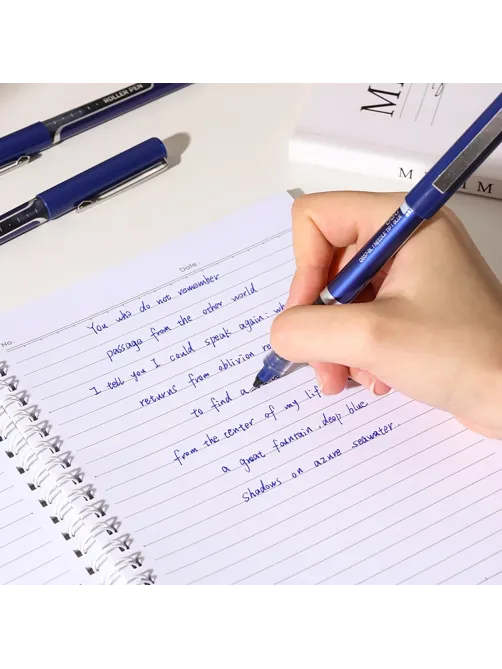 ROLLER PEN
M
MIM
Date:
No.
You who do not remember
passage from the other world
I tell you I could speak again: wh
returns from oblivion re
to find a
from the center of my lif
a great fountain, deep blue
shadows on azure seawater.